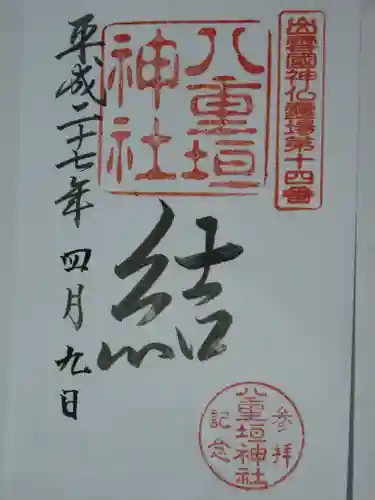 出雲國神仏霊場第十四番
八重垣
神社
結
平成二十七年 四月 九日
参拝
八重垣神社
記念